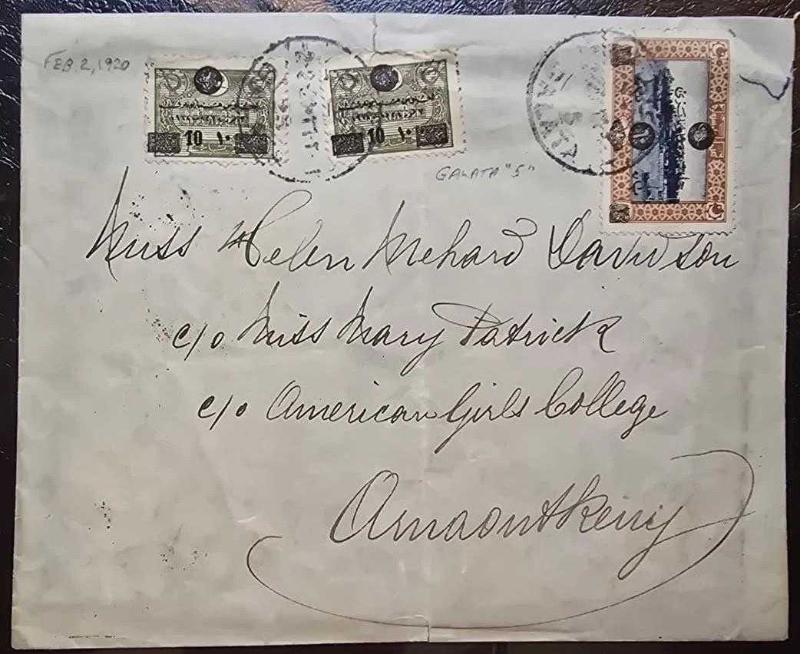 FEB. 2, 1920
10 ١٠
10 ١٠
GALATA
GALATA "5"
Miss Helen Mehard Davidson
c/o Miss Mary Patrick
c/o American Girls College
Arnaoutkeuy